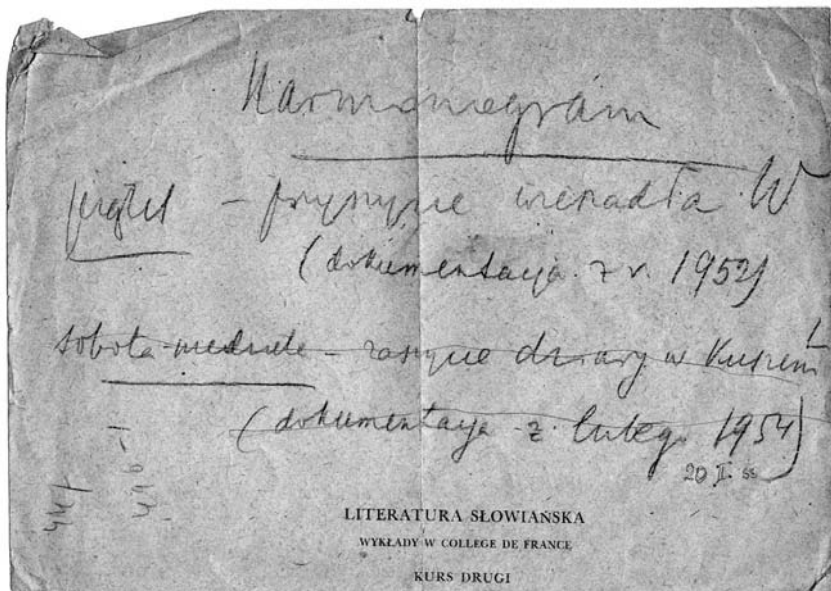 Harmonogram
piątek – przyszycie wieszadła W
(dokumentacja z r. 1952)
sobota-niedziela – zaszycie dziury w Kieszeni L
(dokumentacja z lutego 1954)
20 II 55
LITERATURA SŁOWIAŃSKA
WYKŁADY W COLLEGE DE FRANCE
KURS DRUGI